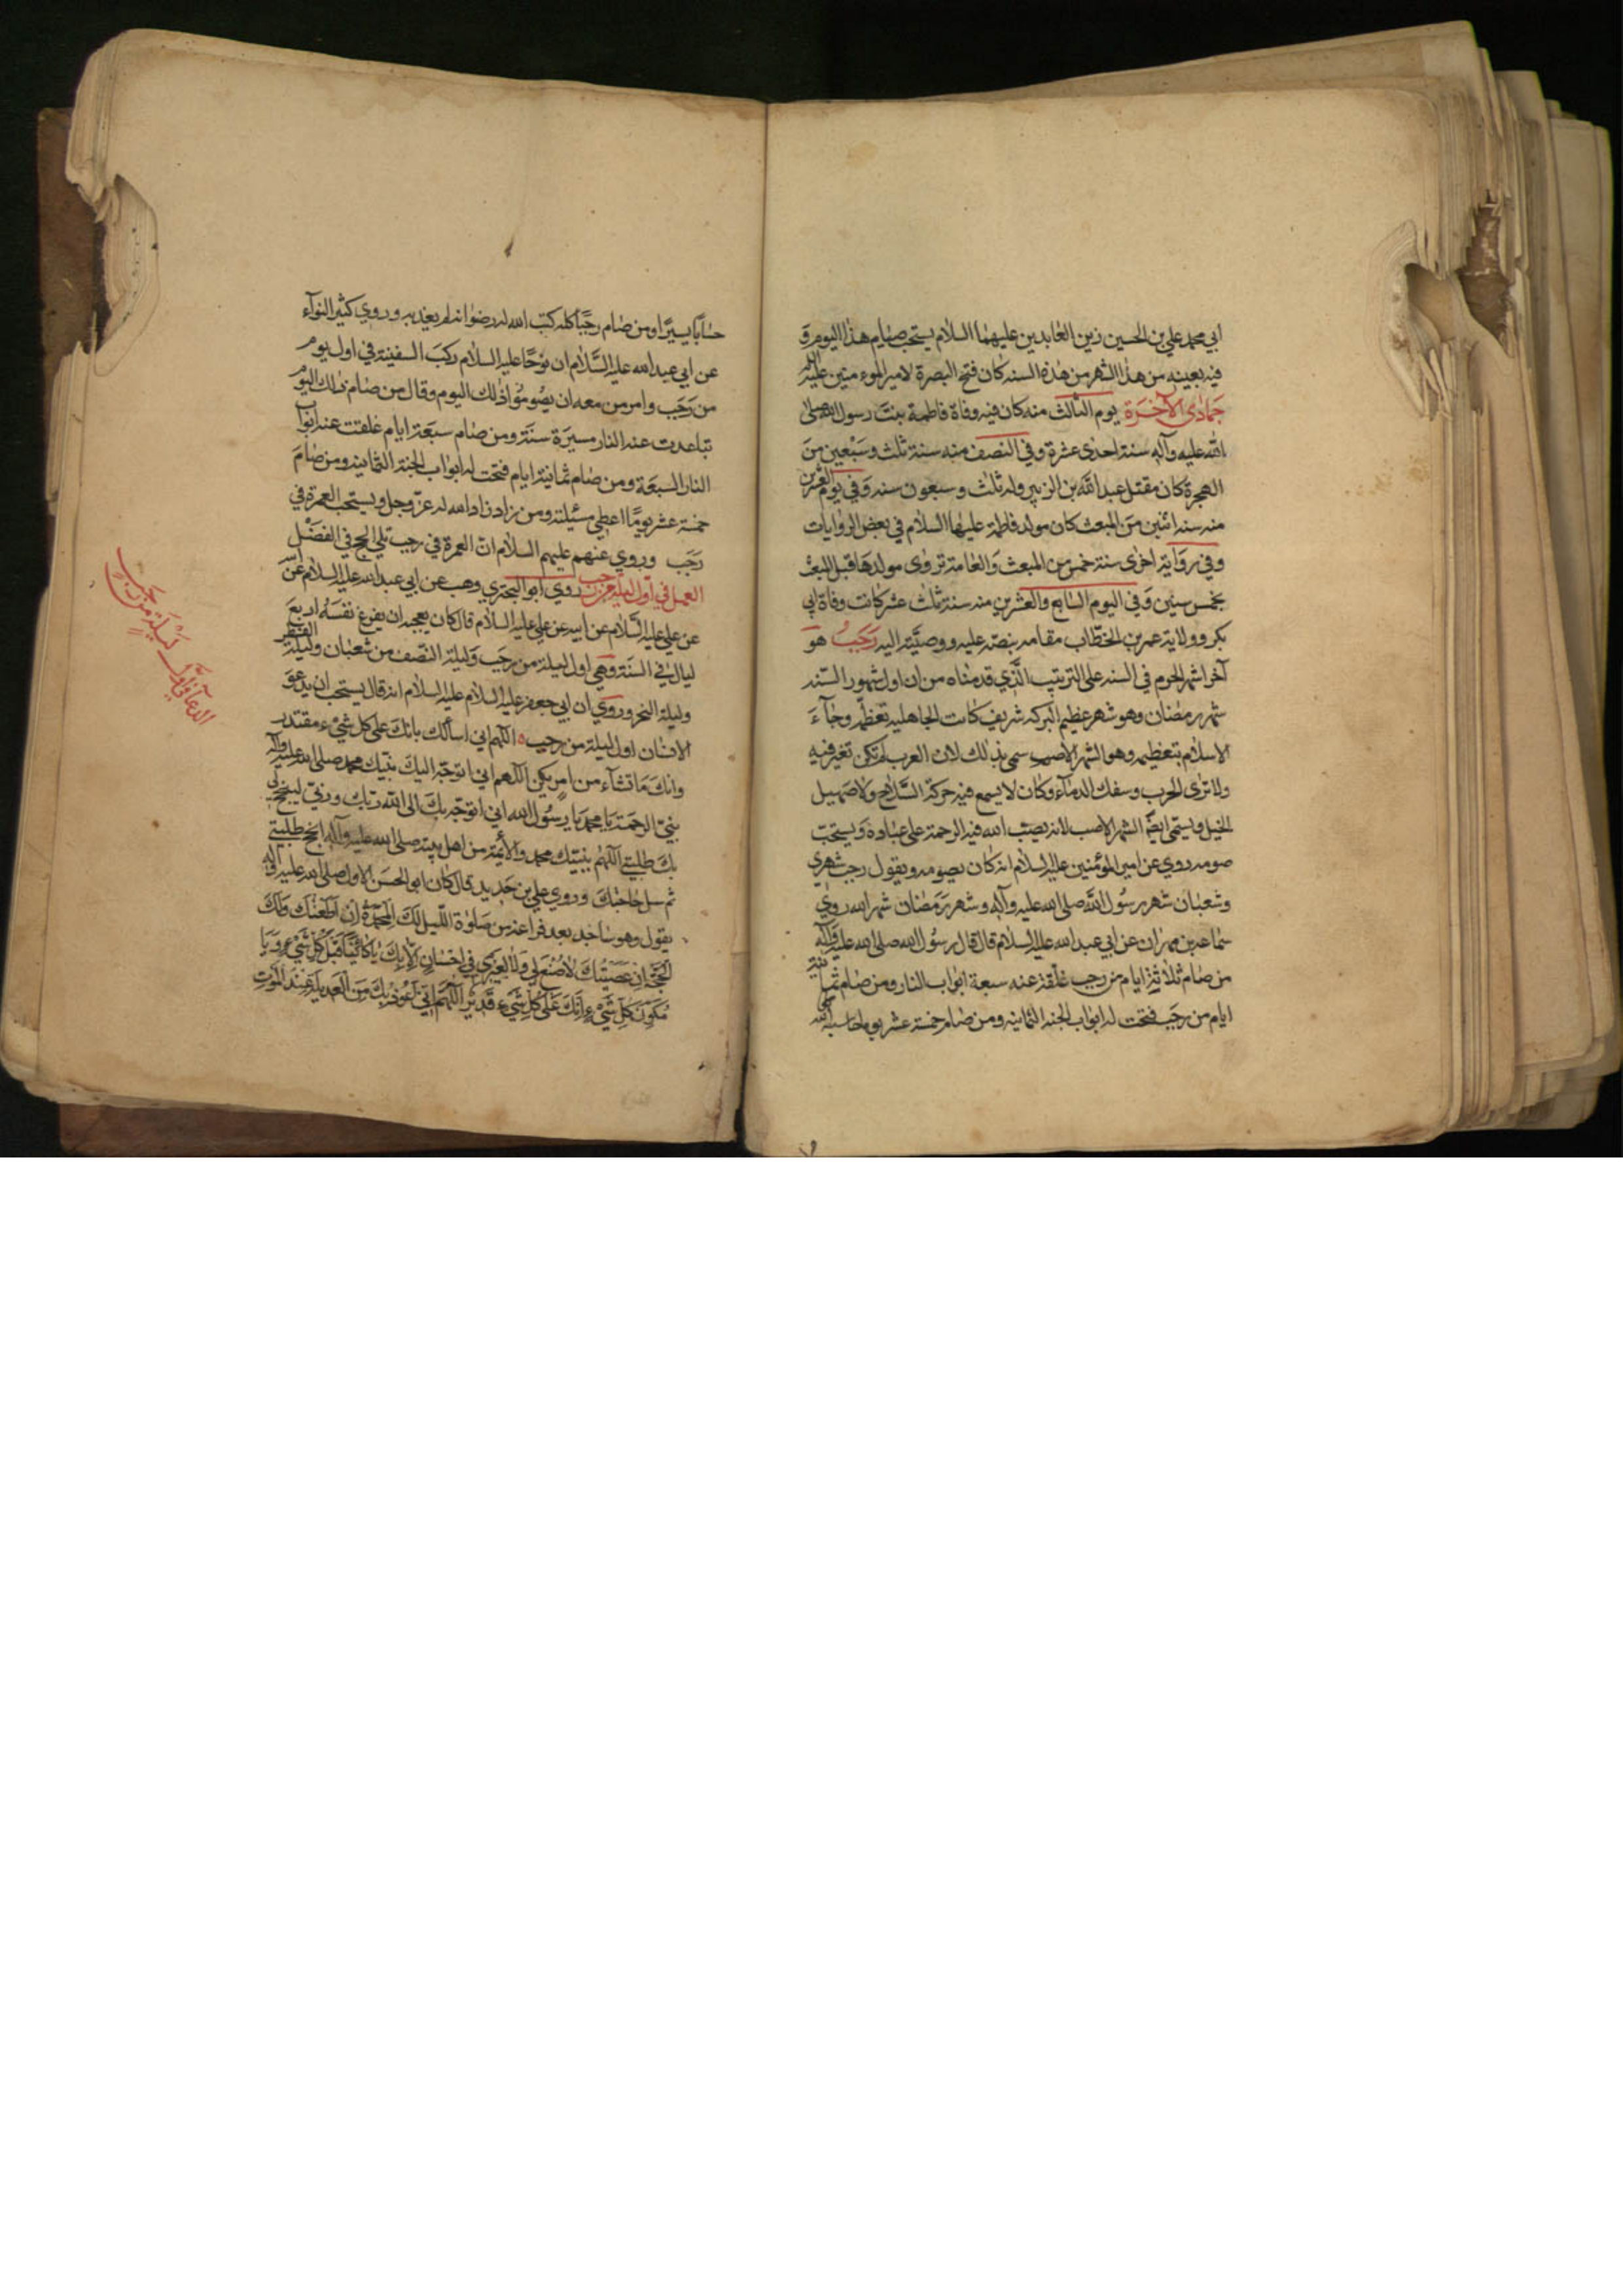 ابي محمد علي بن الحسين زين العابدين عليهما السلام يستحب صيام هذا اليوم و
فيه بعينه من هذا الشهر من هذه السنه كان فتح البصرة لامير المومنين عليه
جمادى الآخرة يوم الثالث منه كان فيه وفاة فاطمة بنت رسول الله صلى
الله عليه وآله سنة احدى عشرة وفي النصف منه سنة ثلث وسبعين من
الهجرة كان مقتل عبد الله بن الزبير وله ثلث وسبعون سنه وفي يوم العشرين
منه سنه اثنين من المبعث كان مولد فاطمة عليها السلام في بعض الروايات
وفي رواية اخرى سنة خمس من المبعث والعامة تروى مولدها قبل المبعث
بخمس سنين وفي اليوم السابع والعشرين منه سنة ثلث عشر كانت وفاة ابي
بكر وولاية عمر بن الخطّاب مقامه بنصّه عليه ووصيّته اليه رجب هو
آخر اشهر الحرم في السنه على الترتيب الّذي قدمناه من ان اول شهور السّنه
شهر رمضان وهو شهر عظيم البركه شريف كانت الجاهليه تعظّمه وجآء
الاسلام بتعظيمه وهو الشهر الاصب سمى بذلك لان العرب لم تكن تغير فيه
ولا ترى الحرب وسفك الدمآء وكان لا يسمع فيه حركة السّلاح ولا صهيل
الخيل ويسمى ايضًا الشهر الاصب لانه يصبّ الله فيه الرحمة على عباده ويستحبّ
صومه روي عن امير المؤمنين عليه السلام انه كان يصومه ويقول رجب شهري
وشعبان شهر رسُول الله صلى الله عليه وآله وشهر رمضان شهر الله روي
سماعه بن مهران عن ابي عبد الله عليه السلام قال قال رسُول الله صلى الله عليه وآله
من صام ثلاثة ايام من رجب غلّقة عنه سبعة ابواب النار ومن صام ثمانية
ايام من رجب فتحت له ابواب الجنه الثمانيه ومن صام خمسة عشر يوما حاسبه الله
حسابًا يسيرًا ومن صام رجبًا كله كتب الله له رضوانه لم يعذبه وروي كثير النوآء
عن ابي عبد الله عليه السّلام ان نوحًا عليه السلام ركب السفينة في اول يوم
من رجب وامر من معه ان يصُوموُا ذلك اليوم وقال من صام ذلك اليوم
تباعدت عنه النار مسيرة سنة ومن صام سبعة ايام غلقت عنه ابواب
النار السبعة ومن صام ثمانية ايام فتحت له ابواب الجنة الثمانيه ومن صام
خمسة عشر يومًا اعطي مسئيلته ومن زاد زاده الله له عزّ وجل ويستحب العمرة في
رجب وروي عنهم عليهم السلام انّ العمرة في رجب تلي الحج في الفضل
العمل في اول ليلة من رجب روي ابو البختري وهب عن ابي عبد الله عليه السلام عن
عن علي عليه السّلام عن ابيه عن علي عليه السلام قال كان يعجبه ان يفرغ نفسَهُ اربع
ليال في السنة وهي اول ليلة من رجب وليلة النّصف من شعبان وليلة الفطر
وليلة النحر وروي ان ابي جعفر عليه السلام عليه السلام انه قال يستحب ان يدعو
الانسان اول ليلة من رجب اللهم اني اسألك بانك على كل شيء مقتدر
وانك ما تشآء من امر يكن اللهم اني اتوجّه اليك بنبيك محمد صلى الله عليه وآله
نبيّ الرحمة يا محمد يا رسُول الله اني اتوجّه بك الى الله ربّك وربّي لينجح لي
بك طلبتي اللهم بنبيّك محمد والأئمة من اهل بيته صلى الله عليه وآله انجح طلبتي
ثم سل حاجتك وروي علي بن حديد قال كان ابو الحسن الاول صلى الله عليه وآله
يقول وهو ساجد بعد فراغه من صلوة اللّيل لك المحمدة ان اطعتك ولك
الحجّة ان عصيتك لا صنع لي ولا لغيري في احسان الّا بك يا كائنًا قبل كل شيء ويا
مكوّن كل شيء انك على كل شيء قدير اللهم اني اعوذ بك من العديلة عند الموت
الدعا في اول ليلة من رجب